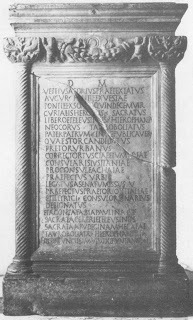 D M
VETTIVS AGORIVS PRAETEXTATVS
AVGVR PONTIFEX VESTAE
PONTIFEX SOLIS QVINDECEMVIR
CVRIALIS HERCVLIS SACRATVS
LIBERO ET ELEVSINIIS HIEROPHANTA
NEOCORVS TAVROBOLIATVS
PATER PATRVM IN REPVBLICA VERO
QVAESTOR CANDIDATVS
PRETOR VRBANVS
CORRECTOR TVSCIAE ET VMBRIAE
CONSVLARIS LVSITANIAE
PROCONSVLE ACHAIAE
PRAEFECTVS VRBI
LEGATVS A SENATV MISSVS
PRAEFECTVS PRAETORIO II ITALIAE
ET ILLYRICI CONSVL ORDINARIVS
DESIGNATVS
ET ACONIA FABIA PAVLINA
SACRATA CERERI ET ELEVSINIIS
SACRATA APVD EGINAM HECATAE
TAVROBOLIATA HIEROPHANTRIA